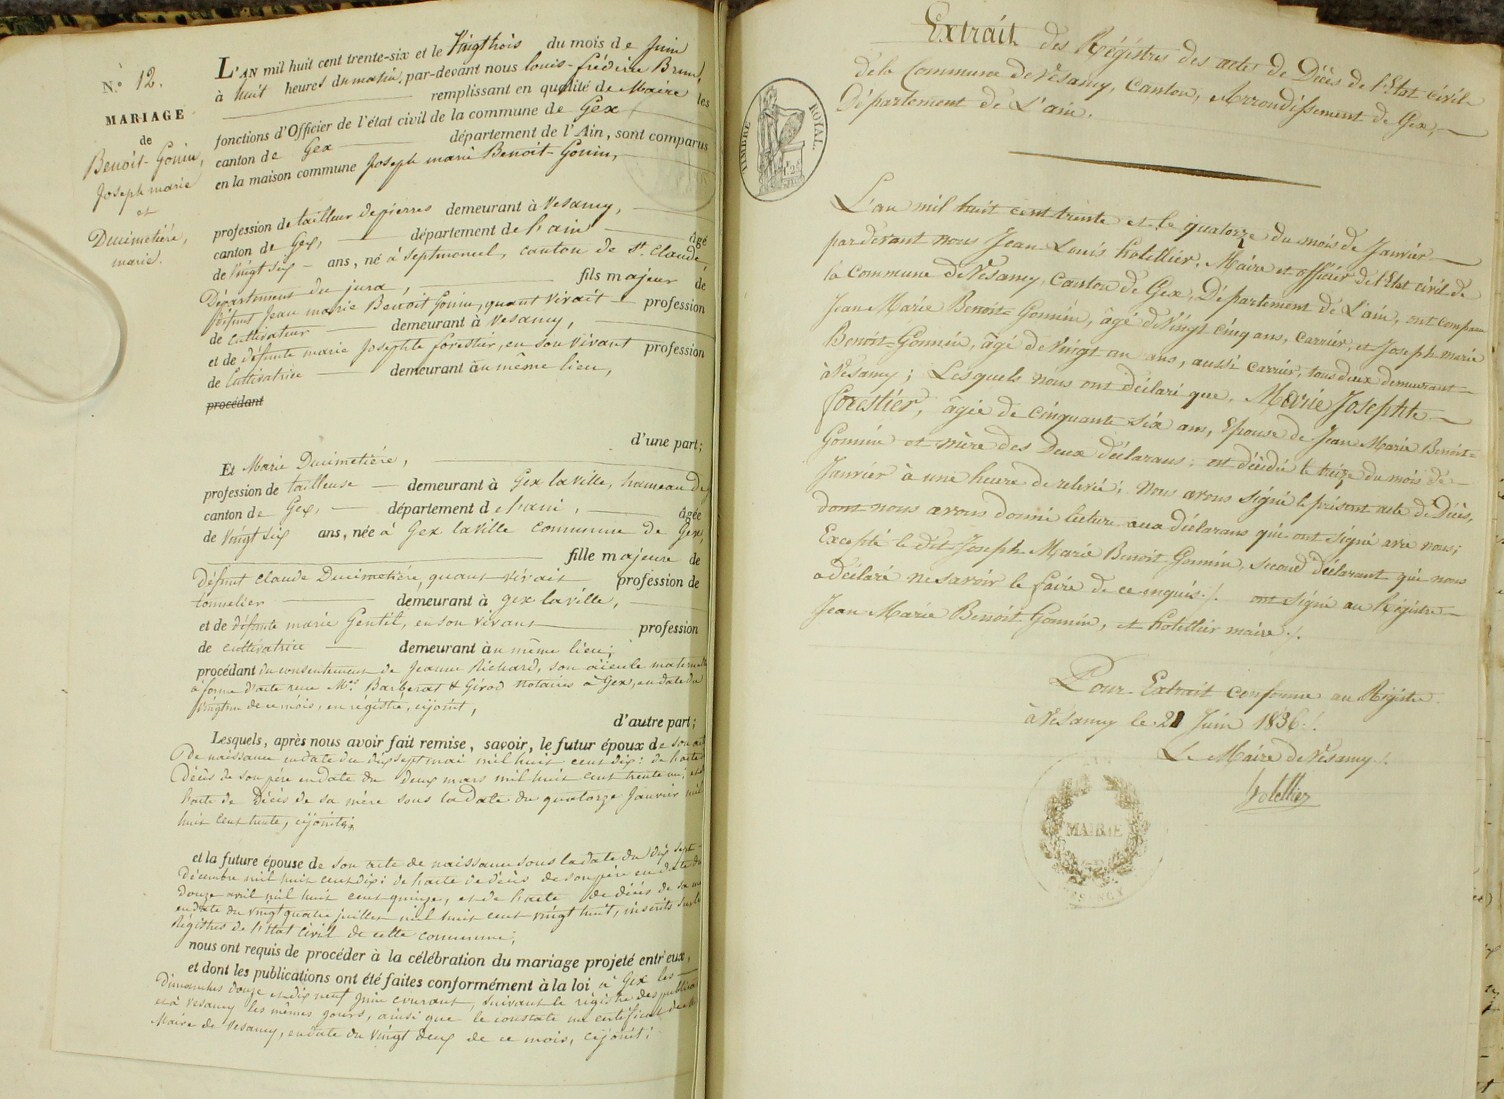 N.° 12.
MARIAGE
de
Benoit-Gonin,
Joseph marie
et
Ducimetière,
marie.
L'AN mil huit cent trente-six et le Vingt trois du mois de Juin
à huit heures du matin, par-devant nous louis-frédéric Brun,
remplissant en qualité de Maire les
fonctions d'Officier de l'état civil de la commune de Gex
canton de Gex département de l'Ain, sont comparus
en la maison commune Joseph marie Benoit-Gonin,
profession de tailleur de pierres demeurant à Vesancy,
canton de Gex, département de l'ain âgé
de vingt six ans, né à Septmoncel, canton de St. Claude,
Département du jura, fils majeur de
défunt Jean marie Benoit Gonin, quant vivait profession
de Cultivateur demeurant à Vesancy,
et de défunte marie Josephte forestier, en son vivant profession
de Cultivatrice demeurant au même lieu,
procédant
d'une part;
Et Marie Ducimetière,
profession de tailleuse demeurant à Gex la ville, hameau de
canton de Gex, département de l'ain, âgée
de Vingt six ans, née à Gex la ville commune de Gex,
fille majeure de
défunt Claude Ducimetière, quant vivait profession de
tonnelier demeurant à gex la ville,
et de défunte marie Gentil, en son vivant profession
de cultivatrice demeurant au même lieu;
procédant du consentement de Jeanne Richard, son aïeule maternelle
à forme d'acte reçu Mes. Barberat & Girod notaires à Gex, en date du
vingt un de ce mois, enregistré, cijoint,
d'autre part;
Lesquels, après nous avoir fait remise, savoir, le futur époux de son acte
De naissance en date du dix sept mai mil huit cent dix; de l'acte de
Décès de son père en date du deux mars mil huit cent trente un; et de
l'acte de Décès de sa mère sous la date du quatorze Janvier mil
huit cent trente, cijoints;
et la future épouse de son acte de naissance sous la date du dix sept
décembre mil huit cent dix; de l'acte de décès de son père en date du
douze avril mil huit cent quinze, et de l'acte de décès de sa mère
en date du vingt quatre juillet mil huit cent vingt huit, inscrits sur les
Régistres de l'Etat civil de cette commune;
nous ont requis de procéder à la célébration du mariage projeté entr'eux,
et dont les publications ont été faites conformément à la loi à Gex les
Dimanches douze et dix neuf juin courant, suivant le registre des publications
et à Vesancy les mêmes jours, ainsi que le constate un certificat de Mr le
Maire de Vesancy, en date du vingt deux de ce mois, cijoint;
Extrait des Régistres des actes de Décès de l'Etat civil
de la Commune de Vésancy, Canton, Arrondissement de Gex,
Département de L'ain.
TIMBRE ROYAL.
L'an mil huit cent trente et le quatorze du mois de Janvier
pardevant nous Jean Louis hotellier, Maire et officier de l'Etat civil de
la Commune de Vésancy, Canton de Gex, Département de L'ain, ont comparu
Jean Marie Benoit-Gonnin, âgé de Vingt cinq ans, Carrier, et Joseph marie
Benoit-Gonnin, âgé de vingt un ans, aussi Carrier, tous deux demeurant
à Vésancy; Lesquels nous ont déclaré que, Marie Josephte
forestier, âgée de cinquante six ans, Epouse de Jean Marie Benoit-
Gonnin et mère des Deux déclarans; est décédée le treize du mois de
Janvier à une heure de relevée; Nous avons signé le présent acte de Décès,
dont nous avons donné lecture aux déclarans qui ont signé avec nous;
Excepté le dit Joseph Marie Benoit Gonnin, second déclarant qui nous
a déclaré ne savoir le faire de ce enquis./. ont signé au Régistre
Jean Marie Benoit Gonnin, et hotellier maire./.
Pour Extrait conforme au Régistre
à Vésancy le 21 Juin 1836./.
Le Maire de Vésancy
hotellier
MAIRIE